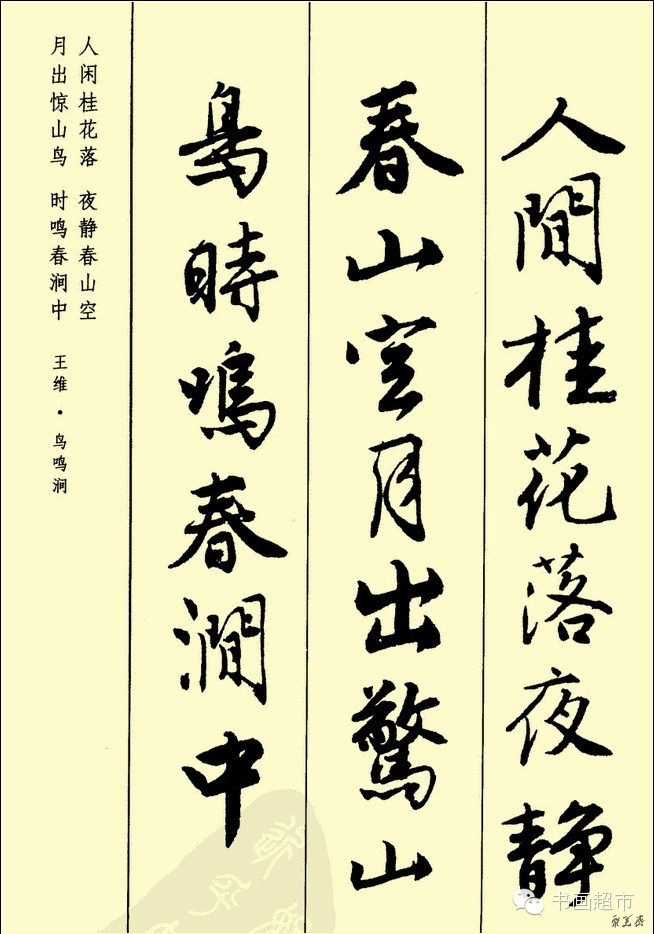 人閒桂花落夜静
春山空月出驚山
鳥時鳴春澗中
人闲桂花落 夜静春山空
月出惊山鸟 时鸣春涧中 王维·鸟鸣涧
书画超市